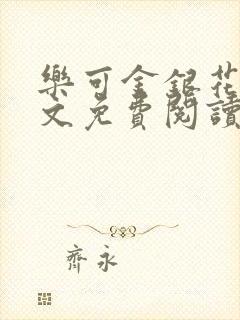 樂可金銀花
文免費閱讀
齊永